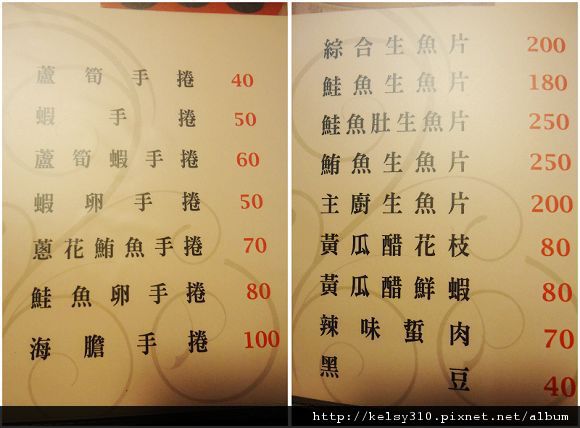 蘆筍手捲 40
蝦手捲 50
蘆筍蝦手捲 60
蝦卵手捲 50
蔥花鮪魚手捲 70
鮭魚卵手捲 80
海膽手捲 100
綜合生魚片 200
鮭魚生魚片 180
鮭魚肚生魚片 250
鮪魚生魚片 250
主廚生魚片 200
黃瓜醋花枝 80
黃瓜醋鮮蝦 80
辣味蜇肉 70
黑豆 40
http://kelsy310.pixnet.net/album